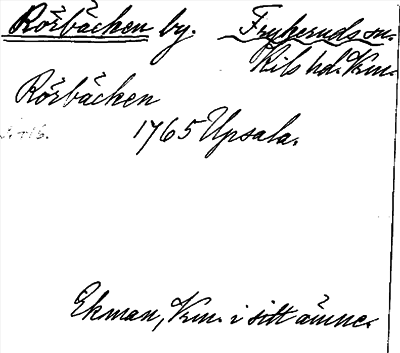 Rörbäcken by. Frykeruds sn.
Kils hd. Vrm.
Rörbäcken
1765 Upsala.
Ekman, Vrm. i sitt ämne.